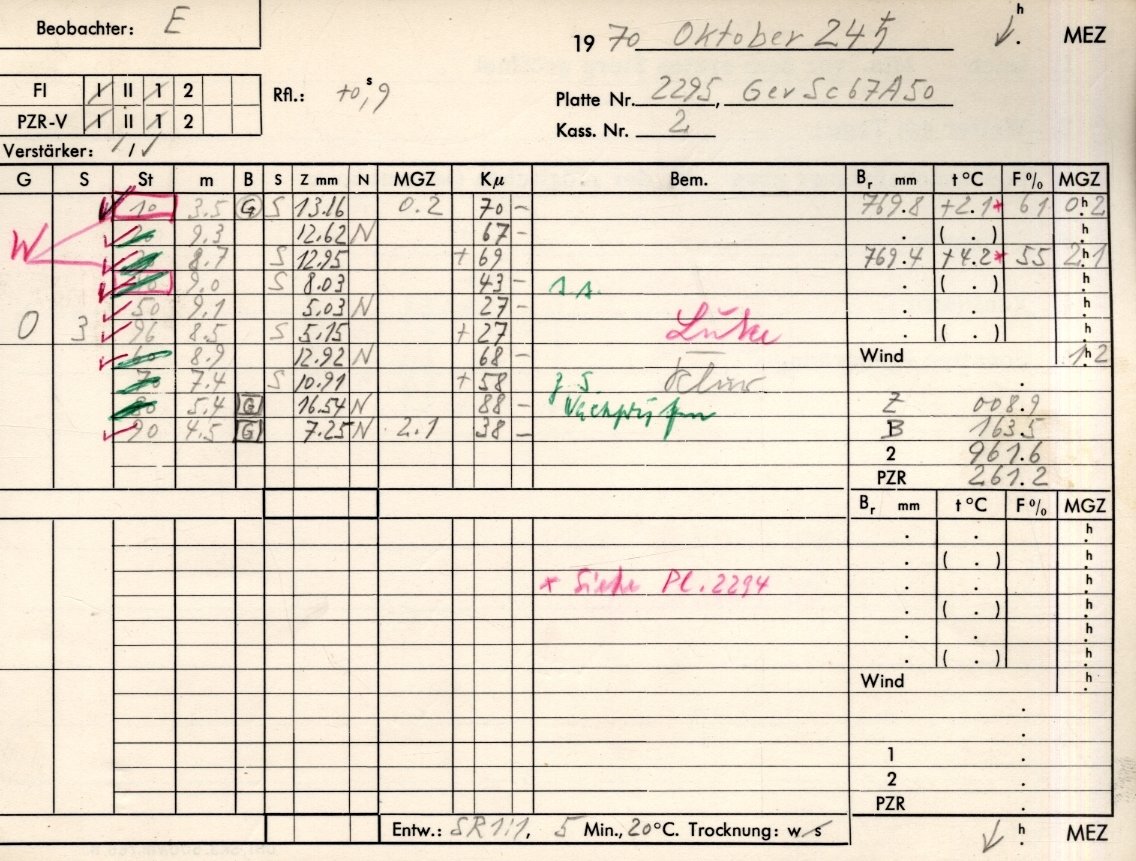 Beobachter: E
19 70 Oktober 24 ♄ h . MEZ
FI I II 1 2 Rfl.: +0,9 s
Platte Nr. 2295, GevSc67A50
PZR-V I II 1 2
Kass. Nr. 2
Verstärker: / 1 /
G S St m B S Z mm N MGZ Kµ Bem. Br mm t °C F% MGZ
10 3.5 G S 13.16 0.2 70 - 769.8 +2.1* 61 0h2
W 9.3 12.62 N 67 - . ( . ) h
8.7 S 12.95 + 69 769.4 +4.2* 55 2h1
9.0 S 8.03 43 - . ( . ) h
50 9.1 5.03 N 27 - . . h
0 3 96 8.5 S 5.15 + 27 Lücke . ( . ) h
60 8.9 12.92 N 68 - Wind 1h2
70 7.4 S 10.91 + 58 z S klar .
80 5.4 G 16.54 N 88 - Nachprüfen Z 008.9
90 4.5 G 7.25 N 2.1 38 - B 163.5
2 961.6
PZR 261.2
Br mm t °C F% MGZ
. . h
. ( . ) h
* Siehe Pl. 2294 . . h
. ( . ) h
. . h
. ( . ) h
Wind h
.
.
1 .
2 .
PZR .
Entw.: SR1:1, 5 Min., 20°C. Trocknung: w s h . MEZ